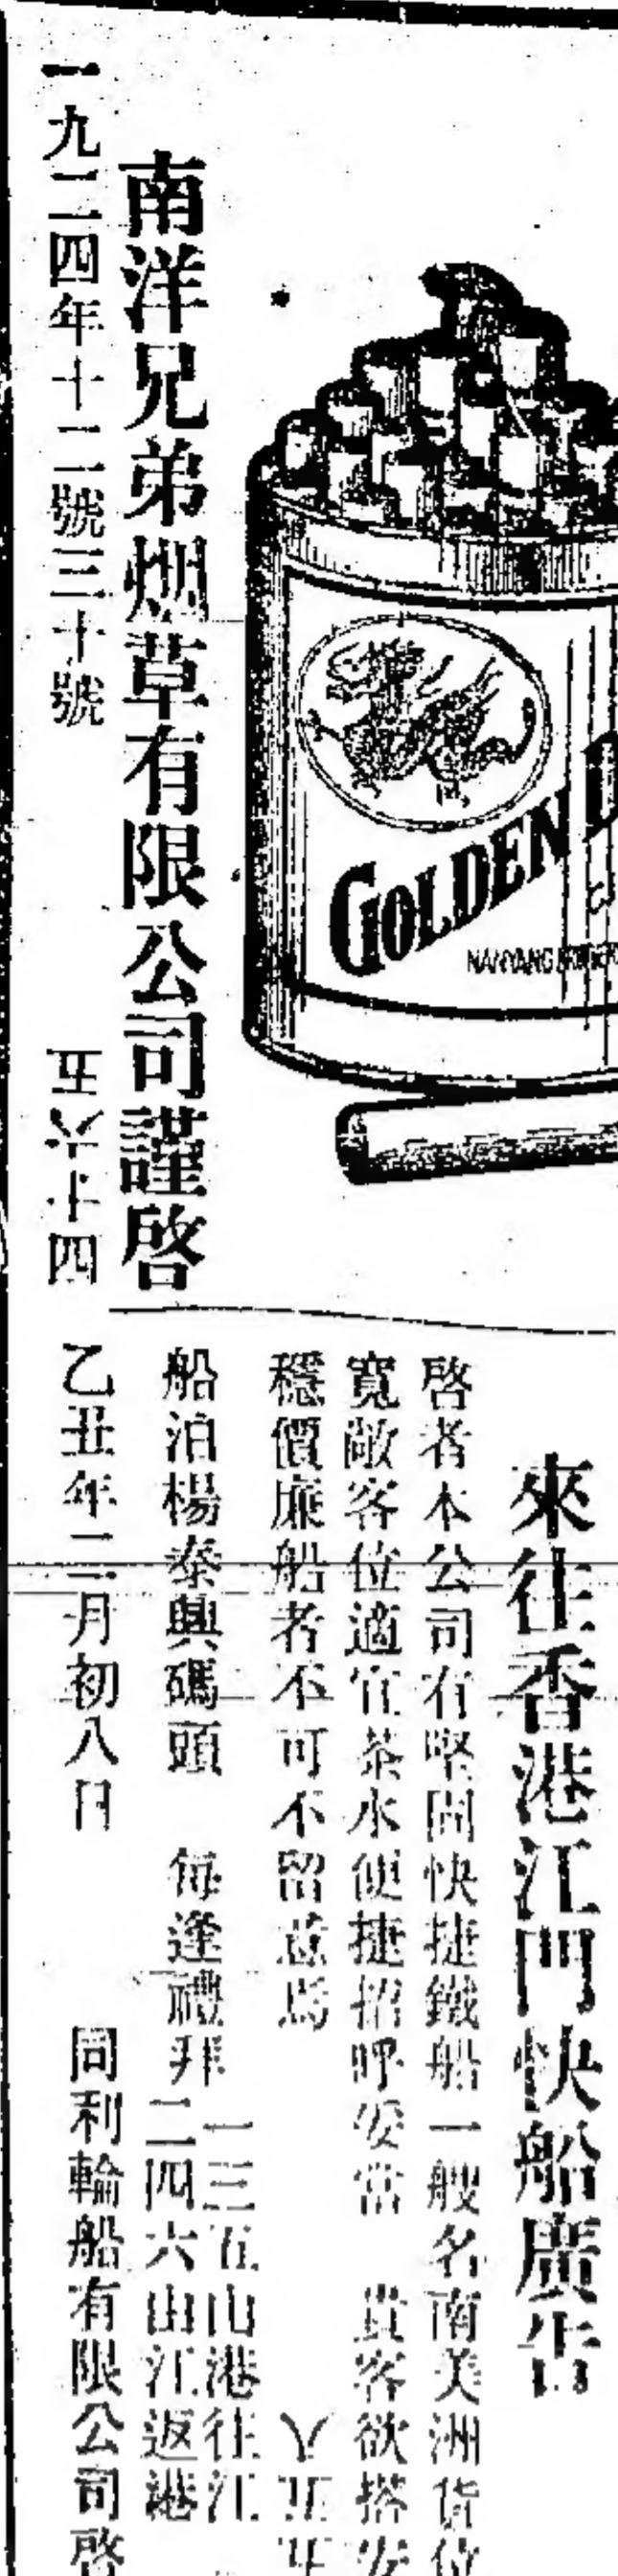 GOLDEN D
NANYANG BROTHERS
南洋兄弟烟草有限公司謹啓
一九二四年十二號三十號
來往香港江門快船廣告
啓者本公司有堅固快捷鐵船一艘名南美洲貨位
寬敞客位適宜茶水便捷招呼妥當 貴客欲搭安
穩價廉船者不可不留意焉
船泊楊泰興碼頭 每逢禮拜
一三五由港往江
二四六由江返港
乙丑年二月初八日 同利輪船有限公司啓